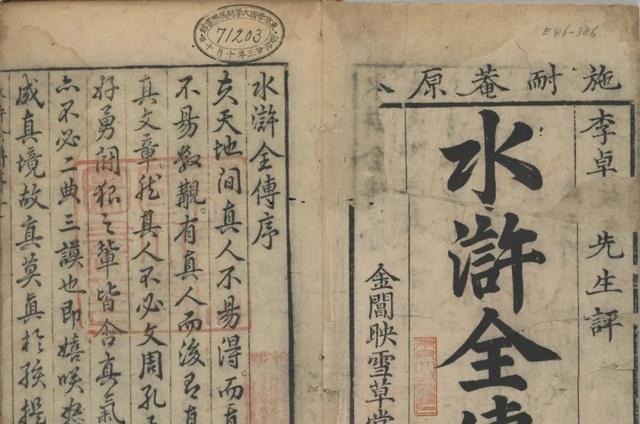 E46-386
施耐菴原
李卓 先生評
水滸全傳
金閶映雪草堂
71203
水滸全傳序
夫天地間真人不易得而真
不易数覯有真人而後有真
真文章然其人不必文周孔
好勇鬭狠之輩皆含真氣
亦不必二典三謨也即嬉咲怒
成真境故真莫真於孩提